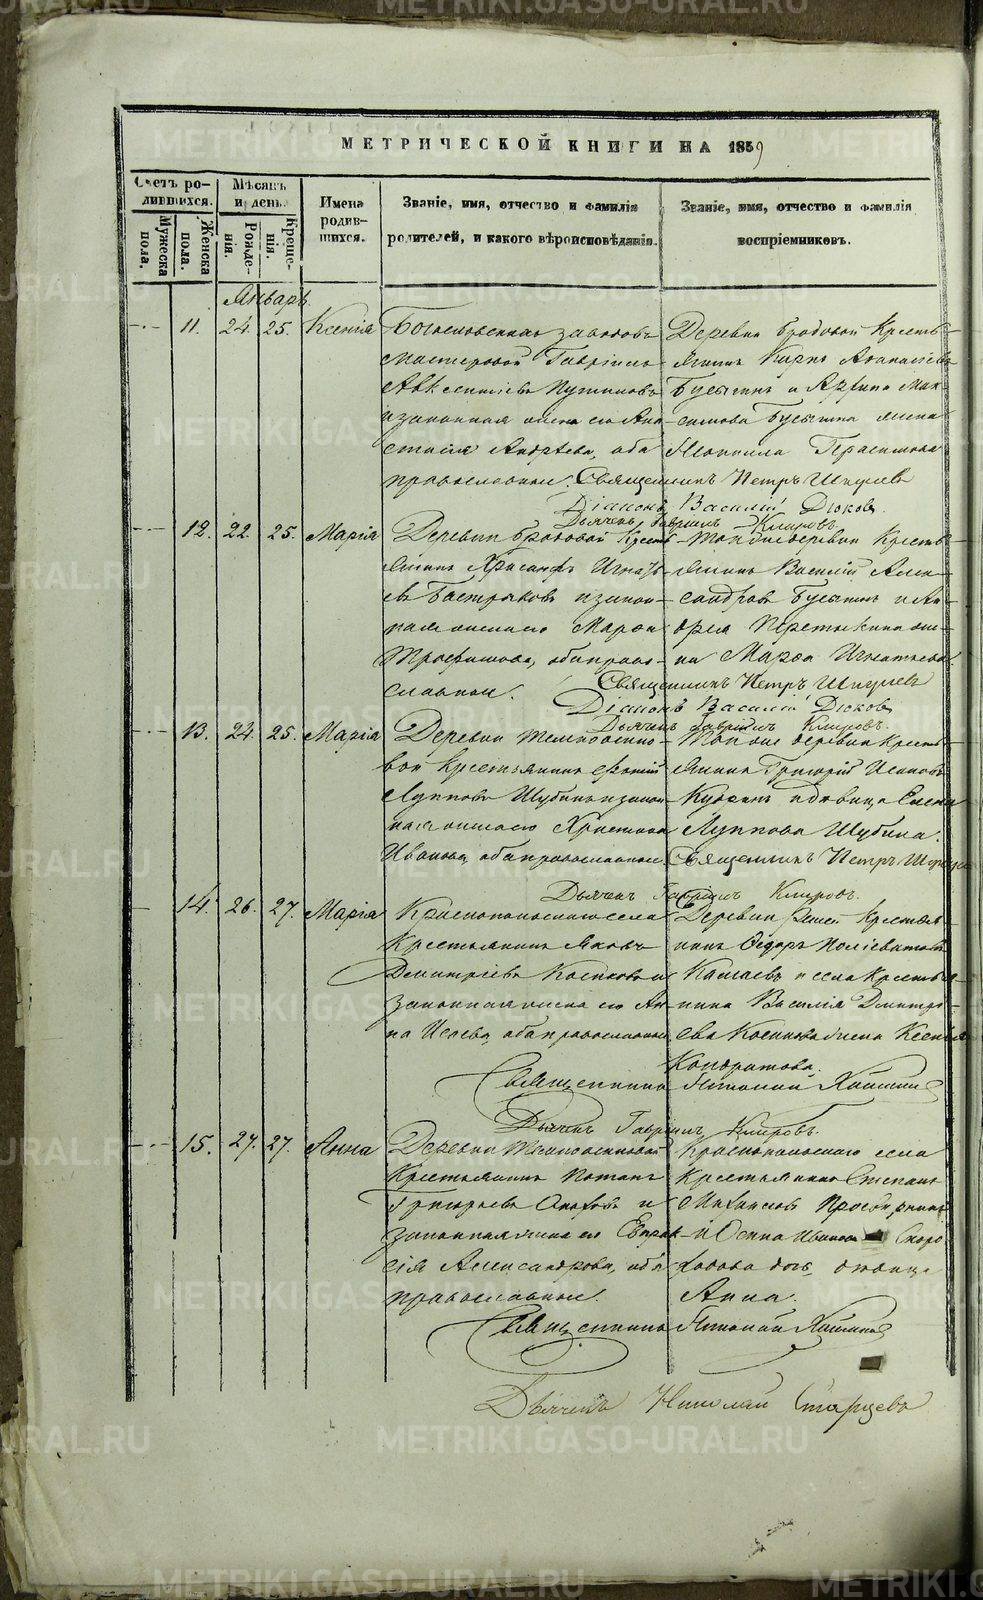 METRIKI.GASO-URAL.RU
МЕТРИЧЕСКОЙ КНИГИ НА 1859
Счетъ родившихся.
Мужеска пола.
Женска пола.
Мѣсяцъ и день.
Рожденія.
Крещенія.
Имена родившихся.
Званіе, имя, отчество и фамилія родителей, и какого вѣроисповѣданія.
Званіе, имя, отчество и фамилія воспріемниковъ.
Январь.
11. 24. 25. Ксенія
Богословскихъ заводовъ
мастеровой Гавріилъ
и законная жена его Ана-
стасія Андрѣева, оба
православные.
Деревни Бродовой Кресть-
янинъ Карпъ Аѳанасіевъ
Бусыгинъ и
Священникъ Петръ
Діаконъ Василій Дюковъ
Дьячекъ Гавріилъ Клировъ.
12. 22. 25. Марія
Деревни Бродовой Кресть-
янинъ
Бастриковъ и закон-
ная жена его Марѳа
Трофимова, оба право-
славные.
Той же деревни Кресть-
янинъ Василій Алек-
сандровъ Бусыгинъ и Ан-
дрея Перетыкина же-
на Марѳа Игнатьева.
Священникъ Петръ
Діаконъ Василій Дюковъ
Дьячекъ Гавріилъ Клировъ.
13. 24. 25. Марія
Деревни
вой Крестьянинъ
Лупповъ Шубинъ и закон-
ная жена его Христина
Иванова, оба православные.
Той же деревни Кресть-
янинъ Григорій Исаковъ
и дѣвица Елена
Луппова Шубина.
Священникъ Петръ
Дьячекъ Гавріилъ Клировъ.
14. 26. 27. Марія
Краснопольскаго села
Крестьянинъ Яковъ
Димитріевъ Косиковъ и
законная жена его Ан-
на Исаева, оба православные
Деревни Крестья-
нинъ Ѳедоръ
и села Крестья-
нина Василія Димитрі-
ева Косикова жена Ксенія
Кондратова.
Священникъ Антоній
Дьячекъ Гавріилъ Клировъ.
15. 27. 27. Анна
Деревни
Крестьянинъ Потапъ
Григорьевъ и
законная жена его Евпрак-
сія Александрова, оба
православные.
Краснопольскаго села
Крестьянинъ Степанъ
и
дочь, дѣвица
Анна.
Священникъ Антоній
Дьячекъ Николай Старцевъ